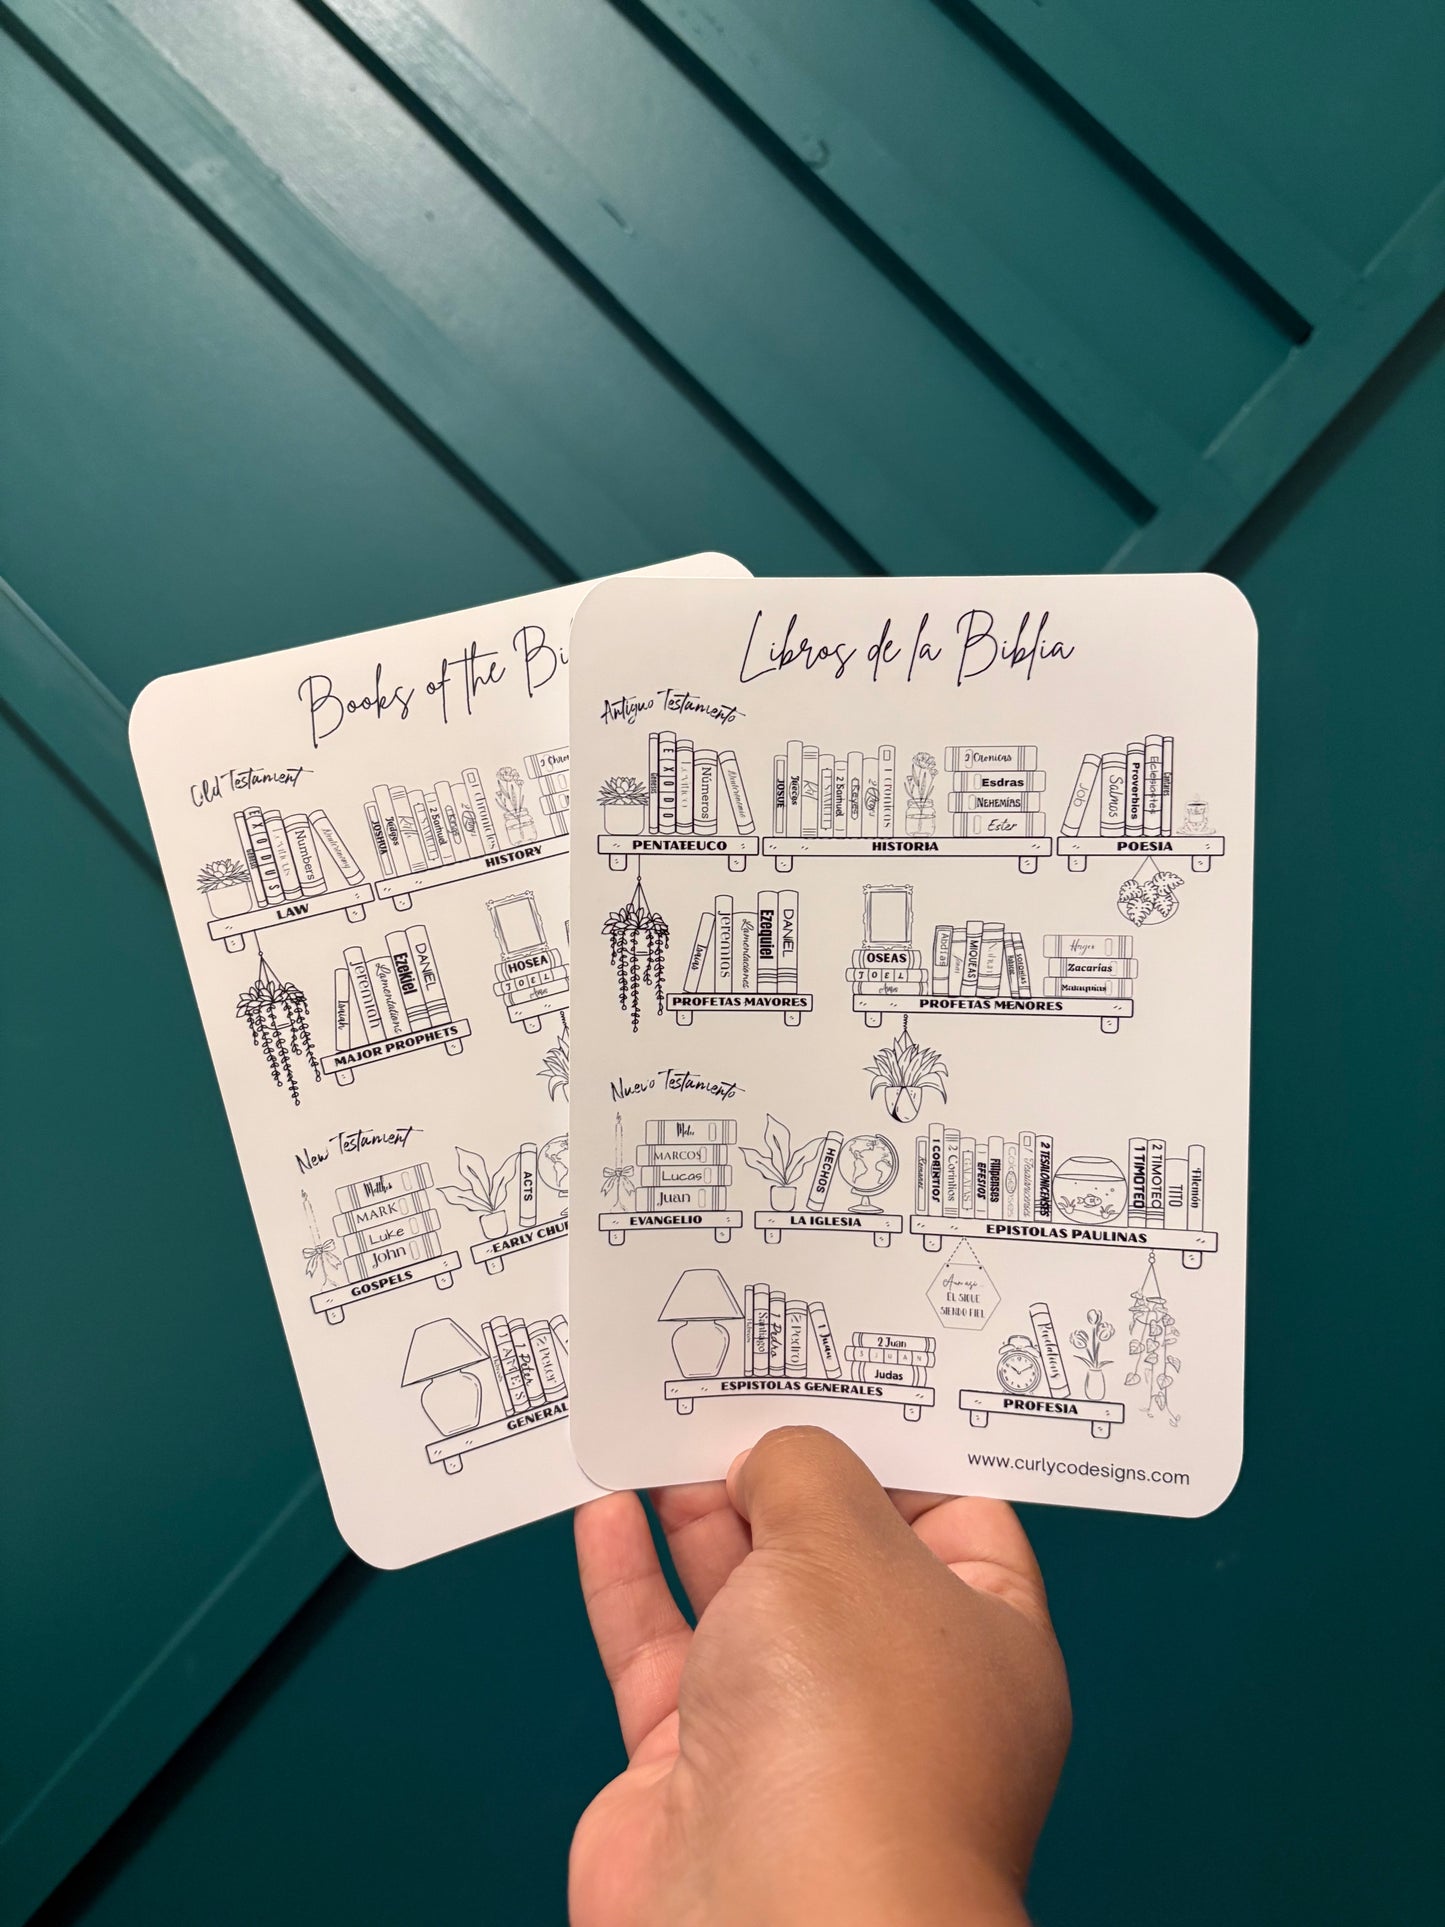 Books of the Bi
Old Testament
Genesis
EXODUS
Leviticus
Numbers
Deuteronomy
LAW
JOSHUA
Judges
Ruth
1 SAMUEL
2 Samuel
1 Kings
2 Kings
1 Chronicles
2 Chron
HISTORY
Isaiah
Jeremiah
Lamentations
Ezekiel
DANIEL
MAJOR PROPHETS
HOSEA
JOEL
Amos
New Testament
Matthew
MARK
Luke
John
GOSPELS
ACTS
EARLY CHUR
Hebrews
JAMES
1 Peter
2 Peter
GENERAL
Libros de la Biblia
Antiguo Testamento
Genesis
EXODO
Levitico
Números
Deuteronomio
PENTATEUCO
JOSUE
Jueces
Rut
1 SAMUEL
2 Samuel
1 Reyes
2 Reyes
1 Cronicas
2 Cronicas
Esdras
NEHEMÍAS
Ester
HISTORIA
Job
Salmos
Proverbios
Eclesiastes
Cantares
POESIA
Isaias
Jeremias
Lamentaciones
Ezequiel
DANIEL
PROFETAS MAYORES
OSEAS
JOEL
Amos
Abdías
Jonas
MIQUEAS
Nahum
Hageo
Zacarías
Malaquías
PROFETAS MENORES
Nuevo Testamento
Mateo
MARCOS
Lucas
Juan
EVANGELIO
HECHOS
LA IGLESIA
Romanos
1 CORINTIOS
2 Corintios
GALATAS
EFESIOS
Filipenses
Colosenses
1 Tesalonicenses
2 TESALONICENSES
1 TIMOTEO
2 TIMOTEO
TITO
Filemón
EPISTOLAS PAULINAS
Aun así...
ÉL SIGUE
SIENDO FIEL
Hebreos
Santiago
1 Pedro
2 Pedro
1 Juan
2 Juan
3 JUAN
Judas
ESPISTOLAS GENERALES
Revelations
PROFESIA
www.curlycodesigns.com